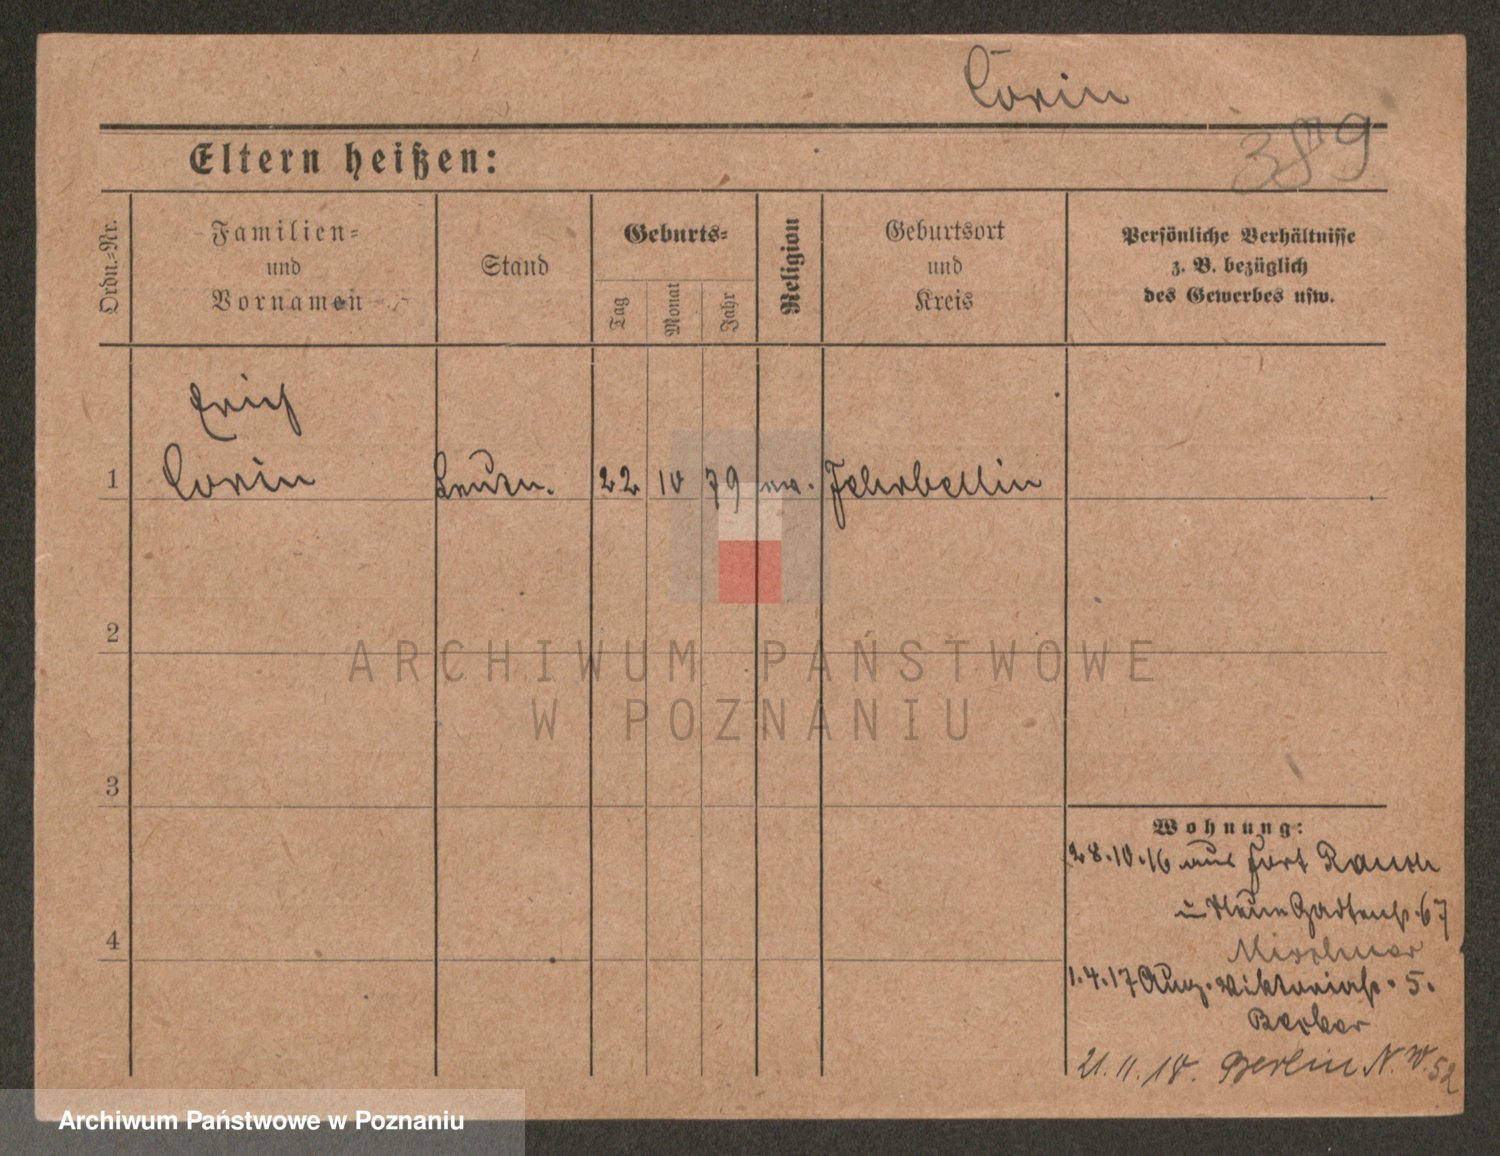 Corin
389
Eltern heißen:
Ordn.-Nr.
Familien-
und
Vornamen
Stand
Geburts-
Tag
Monat
Jahr
Religion
Geburtsort
und
Kreis
Persönliche Verhältnisse
z. B. bezüglich
des Gewerbes usw.
Erich
1 Corin Leutn. 22 10 79 ev. Fehrbellin
2
3
4
Wohnung:
28.10.16 aus Fort Rauch
n. Neue Gartenstr. 67
1.4.17 Aug. Viktoriastr. 5.
Becker
21.11.18. Berlin N.W. 52
ARCHIWUM PAŃSTWOWE
W POZNANIU
Archiwum Państwowe w Poznaniu